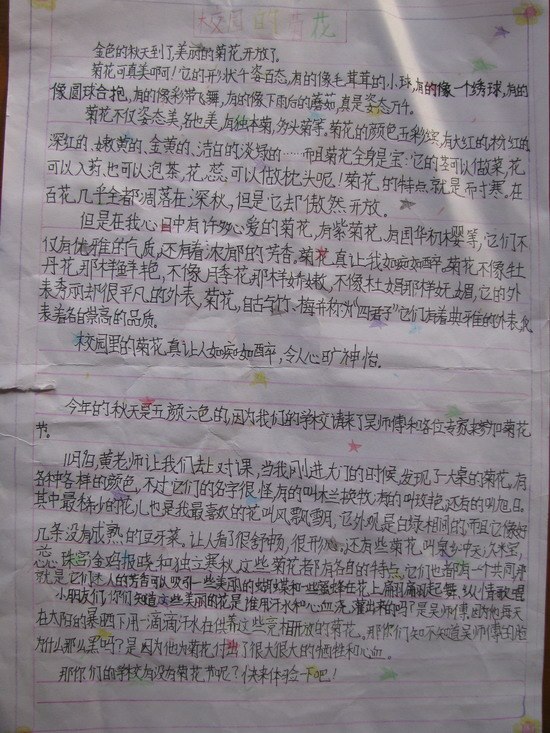 校园的菊花
金色的秋天到了,美丽的菊花开放了。
菊花可真美啊!它的形状千姿百态,有的像毛茸茸的小球,有的像一个绣球,有的
像圆球合抱,有的像彩带飞舞,有的像下雨后的蘑菇,真是姿态万千。
菊花不仅姿态美,名也美,有独本菊,多头菊等,菊花的颜色五彩缤,有大红的,粉红的
深红的、嫩黄的、金黄的、洁白的,淡绿的……而且菊花全身是宝:它的茎可以做菜,花
可以入药,也可以泡茶,花,蕊,可以做枕头呢!菊花,的特点就是耐寒。在
百花几乎全都凋落在深秋,但是它却傲然开放。
但是在我心目中有许多心爱的菊花,有紫菊花,有国华初樱等,它们不
仅有优雅的气质,还有着浓郁的芳香,菊花真让我如痴如醉。菊花不像牡
丹花那样鲜艳,不像月季花那样娇嫩,不像杜娟那样妩媚,它的外
表秀丽却很平凡的外表,菊花,自古与竹、梅并称为“四君子”它们有着典雅的外表,
表着名自崇高的品质。
校园里的菊花真让人如痴如醉,令人心旷神怡。
今年的秋天是五颜六色的,因为我们的学校请来了吴师傅和各位专家来 菊花
节。
11月1日,黄老师让我们去上对课,当我刚进大门的时候,发现了大桌的菊花。有
各种各样的颜色,不过它们的名字很怪有的叫木兰披 ,有的叫玫艳,还有的叫旭日。
其中最 小的花儿也是我最喜欢的花叫风飘雪月,它外观是白绿相间的,而且它像好
几条没有成熟的豆牙菜。让人看了很舒畅,很形心,还有些菊花叫泉乡 天、久米宝,
珠宫金鸡报晓和独立寒秋,这些菊花都有各自的特点,它们也都有一个共同点
就是它们迷人的芳香可以吸引一些美丽的蝴蝶和一些蜜蜂在花上翩翩起舞,纵情歌唱
小朋友们,你们知道这些美丽的花是谁用汗水和心血浇灌出来的吗?是吴师傅,因为他每天
在太阳的暴晒下用一滴滴汗水在供养这些竞相开放的菊花。那你们知不知道吴师傅的脸
为什么那么黑吗?是因为他为菊花付出了很大很大的牺牲和心血。
那你们的学校有没有菊花节呢?快来体验一下吧!